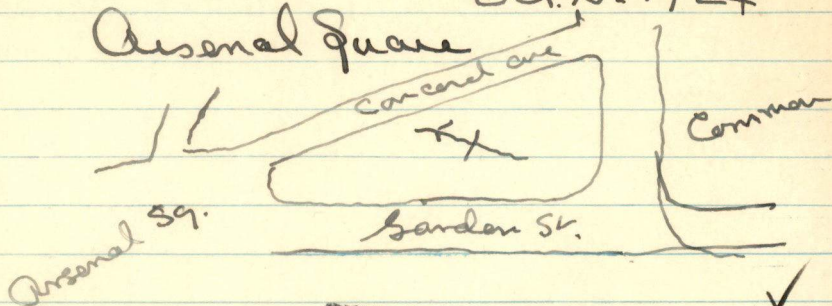 Arsenal Square
Concord ave
Common
Arsenal Sq.
Garden St.